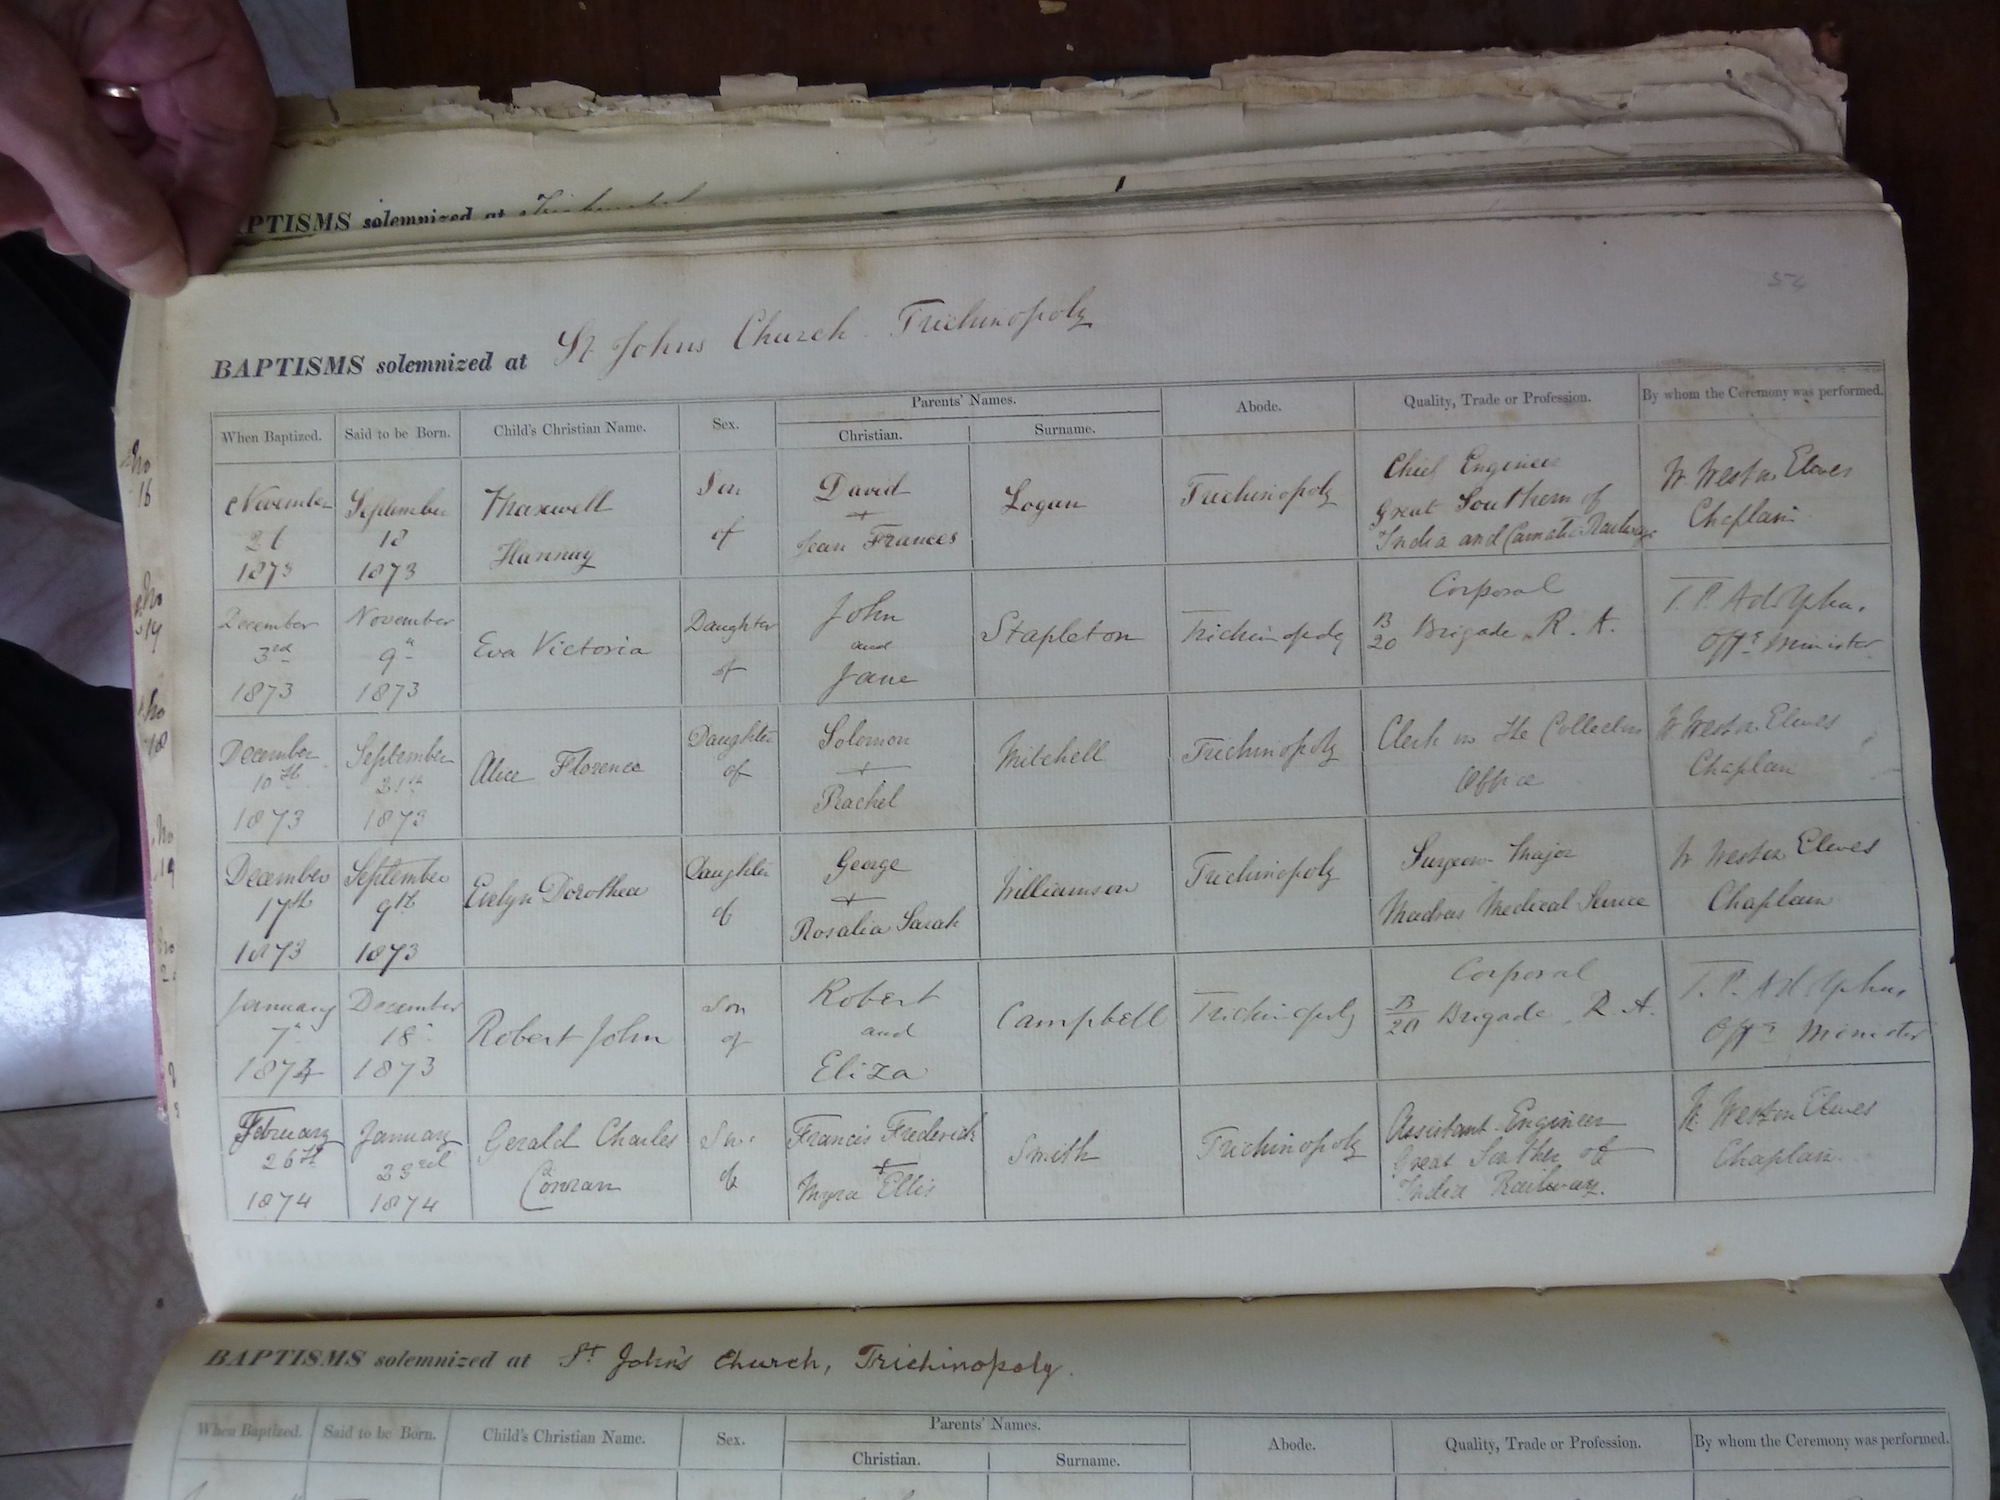 BAPTISMS solemnized at
54
BAPTISMS solemnized at St Johns Church Trichinopoly
When Baptized. Said to be Born. Child's Christian Name. Sex. Parents' Names. Christian. Surname. Abode. Quality, Trade or Profession. By whom the Ceremony was performed.
No 16
November 21 1873 September 18 1873 Thaxwell Hannay Son of David + Jean Frances Logan Trichinopoly Chief Engineer Great Southern of India and Carnatic Railway W Weston Elwes Chaplain
No
December 3rd 1873 November 9th 1873 Eva Victoria Daughter of John and Jane Stapleton Trichinopoly Corporal B/20 Brigade R. A. T. P. Adolphus Offg Minister
No 18
December 10th 1873 September 21st 1873 Alice Florence Daughter of Solomon + Rachel Mitchell Trichinopoly Clerk in the Collectors Office W Weston Elwes Chaplain
No 19
December 17th 1873 September 9th 1873 Evelyn Dorothea Daughter of George + Rosalia Sarah Williamson Trichinopoly Surgeon Major Madras Medical Service W Weston Elwes Chaplain
January 7th 1874 December 18th 1873 Robert John Son of Robert and Eliza Campbell Trichinopoly Corporal B/20 Brigade R. A. T. P. Adolphus Offg Minister
February 26th 1874 January 23rd 1874 Gerald Charles Conran Son of Francis Frederick + Myra Ellis Smith Trichinopoly Assistant Engineer Great Southern of India Railway. W. Weston Elwes Chaplain
BAPTISMS solemnized at St John's Church, Trichinopoly.
When Baptized. Said to be Born. Child's Christian Name. Sex. Parents' Names. Christian. Surname. Abode. Quality, Trade or Profession. By whom the Ceremony was performed.